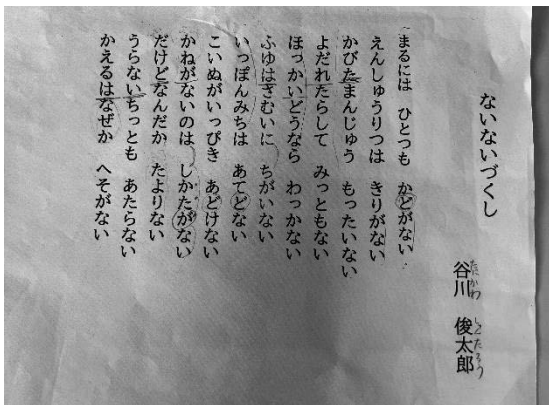 ないないづくし
谷川 俊太郎
たにかわ しゅんたろう
まるには ひとつも かどがない
えんしゅうりつは きりがない
かびたまんじゅう もったいない
よだれたらして みっともない
ほっかいどうなら わっかない
ふゆはさむいに ちがいない
いっぽんみちは あてどない
こいぬがいっぴき あどけない
かねがないのは しかたがない
だけどなんだか たよりない
うらないちっとも あたらない
かえるはなぜか へそがない